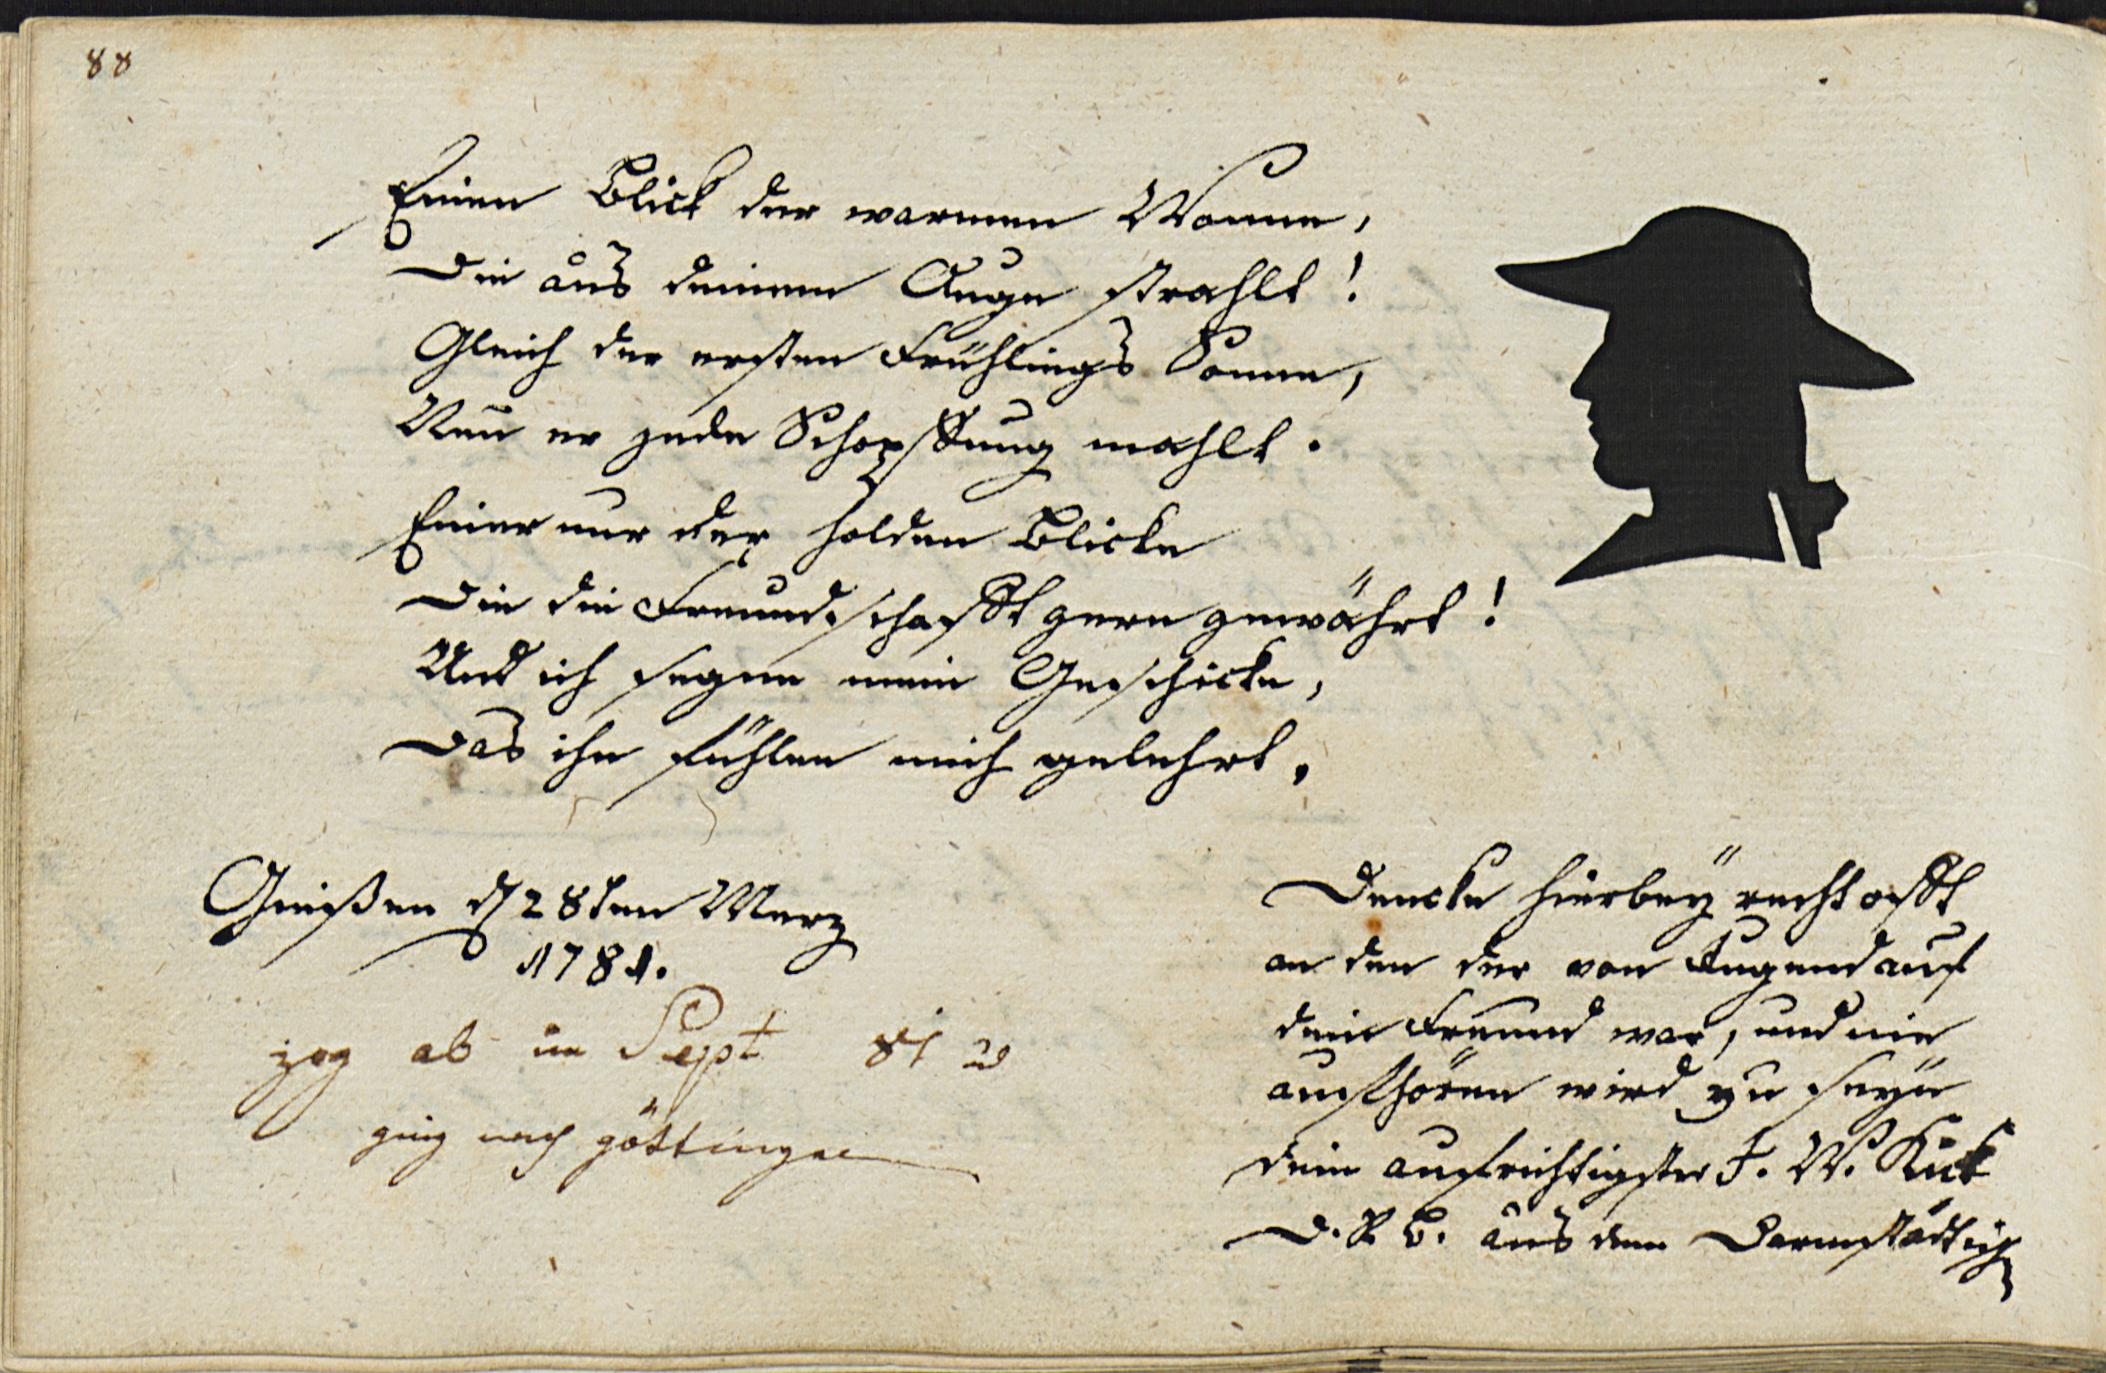 88
Einen Blick der warmen Wonne,
Die aus deinem Auge strahlt!
Gleich der ersten Frühlings Sonne,
Neu er jede Schopffung mahlt.
Einer nur der holden Blicke
Die die Freundschafft gern gewährt!
Und ich segne mein Geschicke,
Das ihn fühlen mich gelehrt.
Gießen d 28ten Merz
1781.
zog ab im Sept 81 u
ging nach göttingen
Dencke hierbey recht offt
an den der von Jugend auf
dein Freund war, und nie
aufhören wird zu seyn
dein aufrichtigster F. W.
D. R. B. aus dem Darmstädtisch